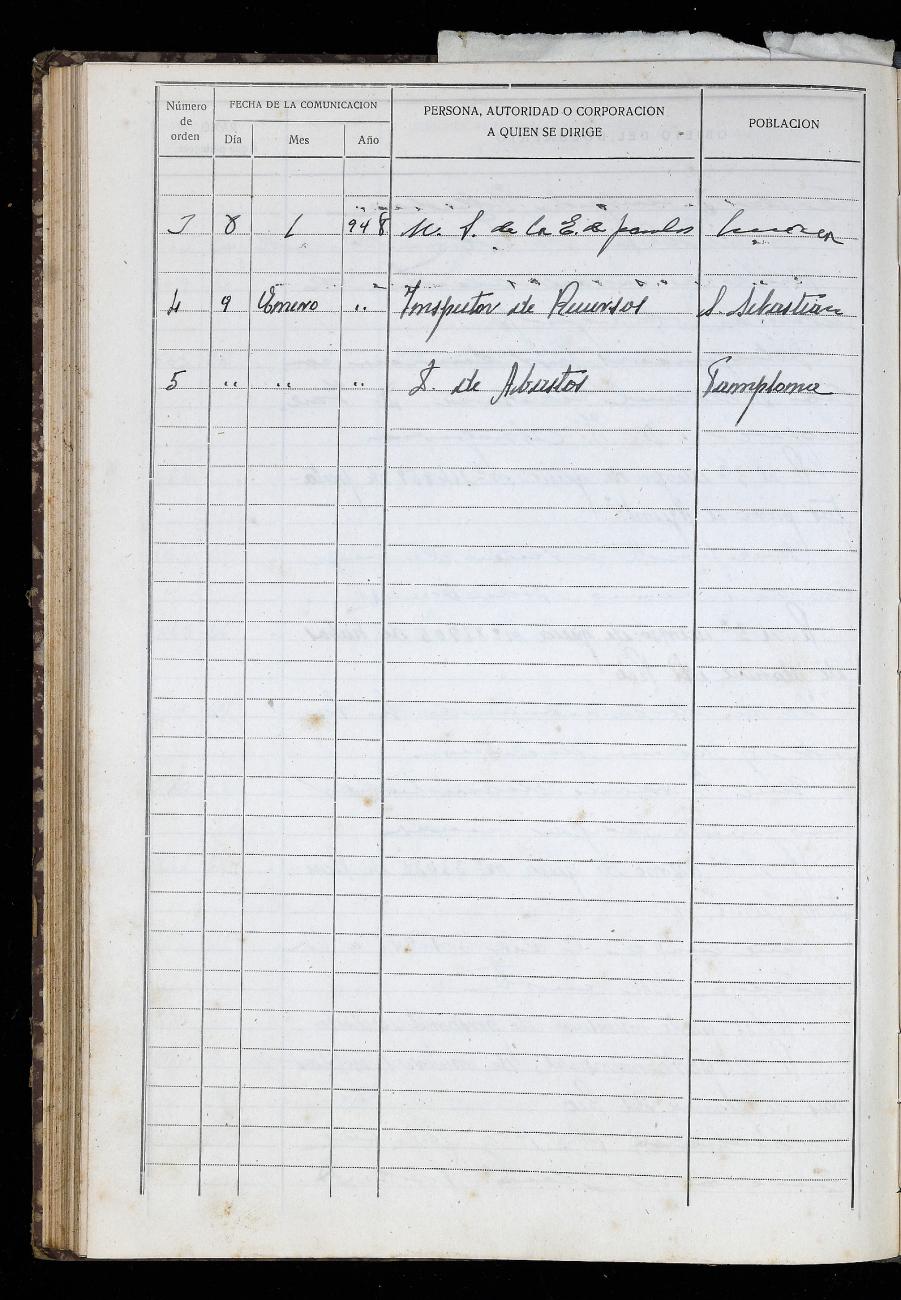 Número de orden
FECHA DE LA COMUNICACION
Día Mes Año
PERSONA, AUTORIDAD O CORPORACION
A QUIEN SE DIRIGE
POBLACION
3 8 1 948 de la E. de
4 9 Enero " Inspector de Recursos S. Sebastián
5 " " " I. de Abastos Pamplona